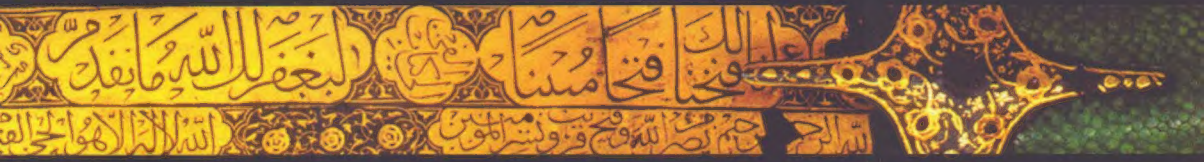 فتحنا لك فتحا مبينا ليغفر لك الله ما تقدم
الله الرحمن الرحيم نصر من الله وفتح قريب وبشر المؤمنين الله لا اله الا هو الحي